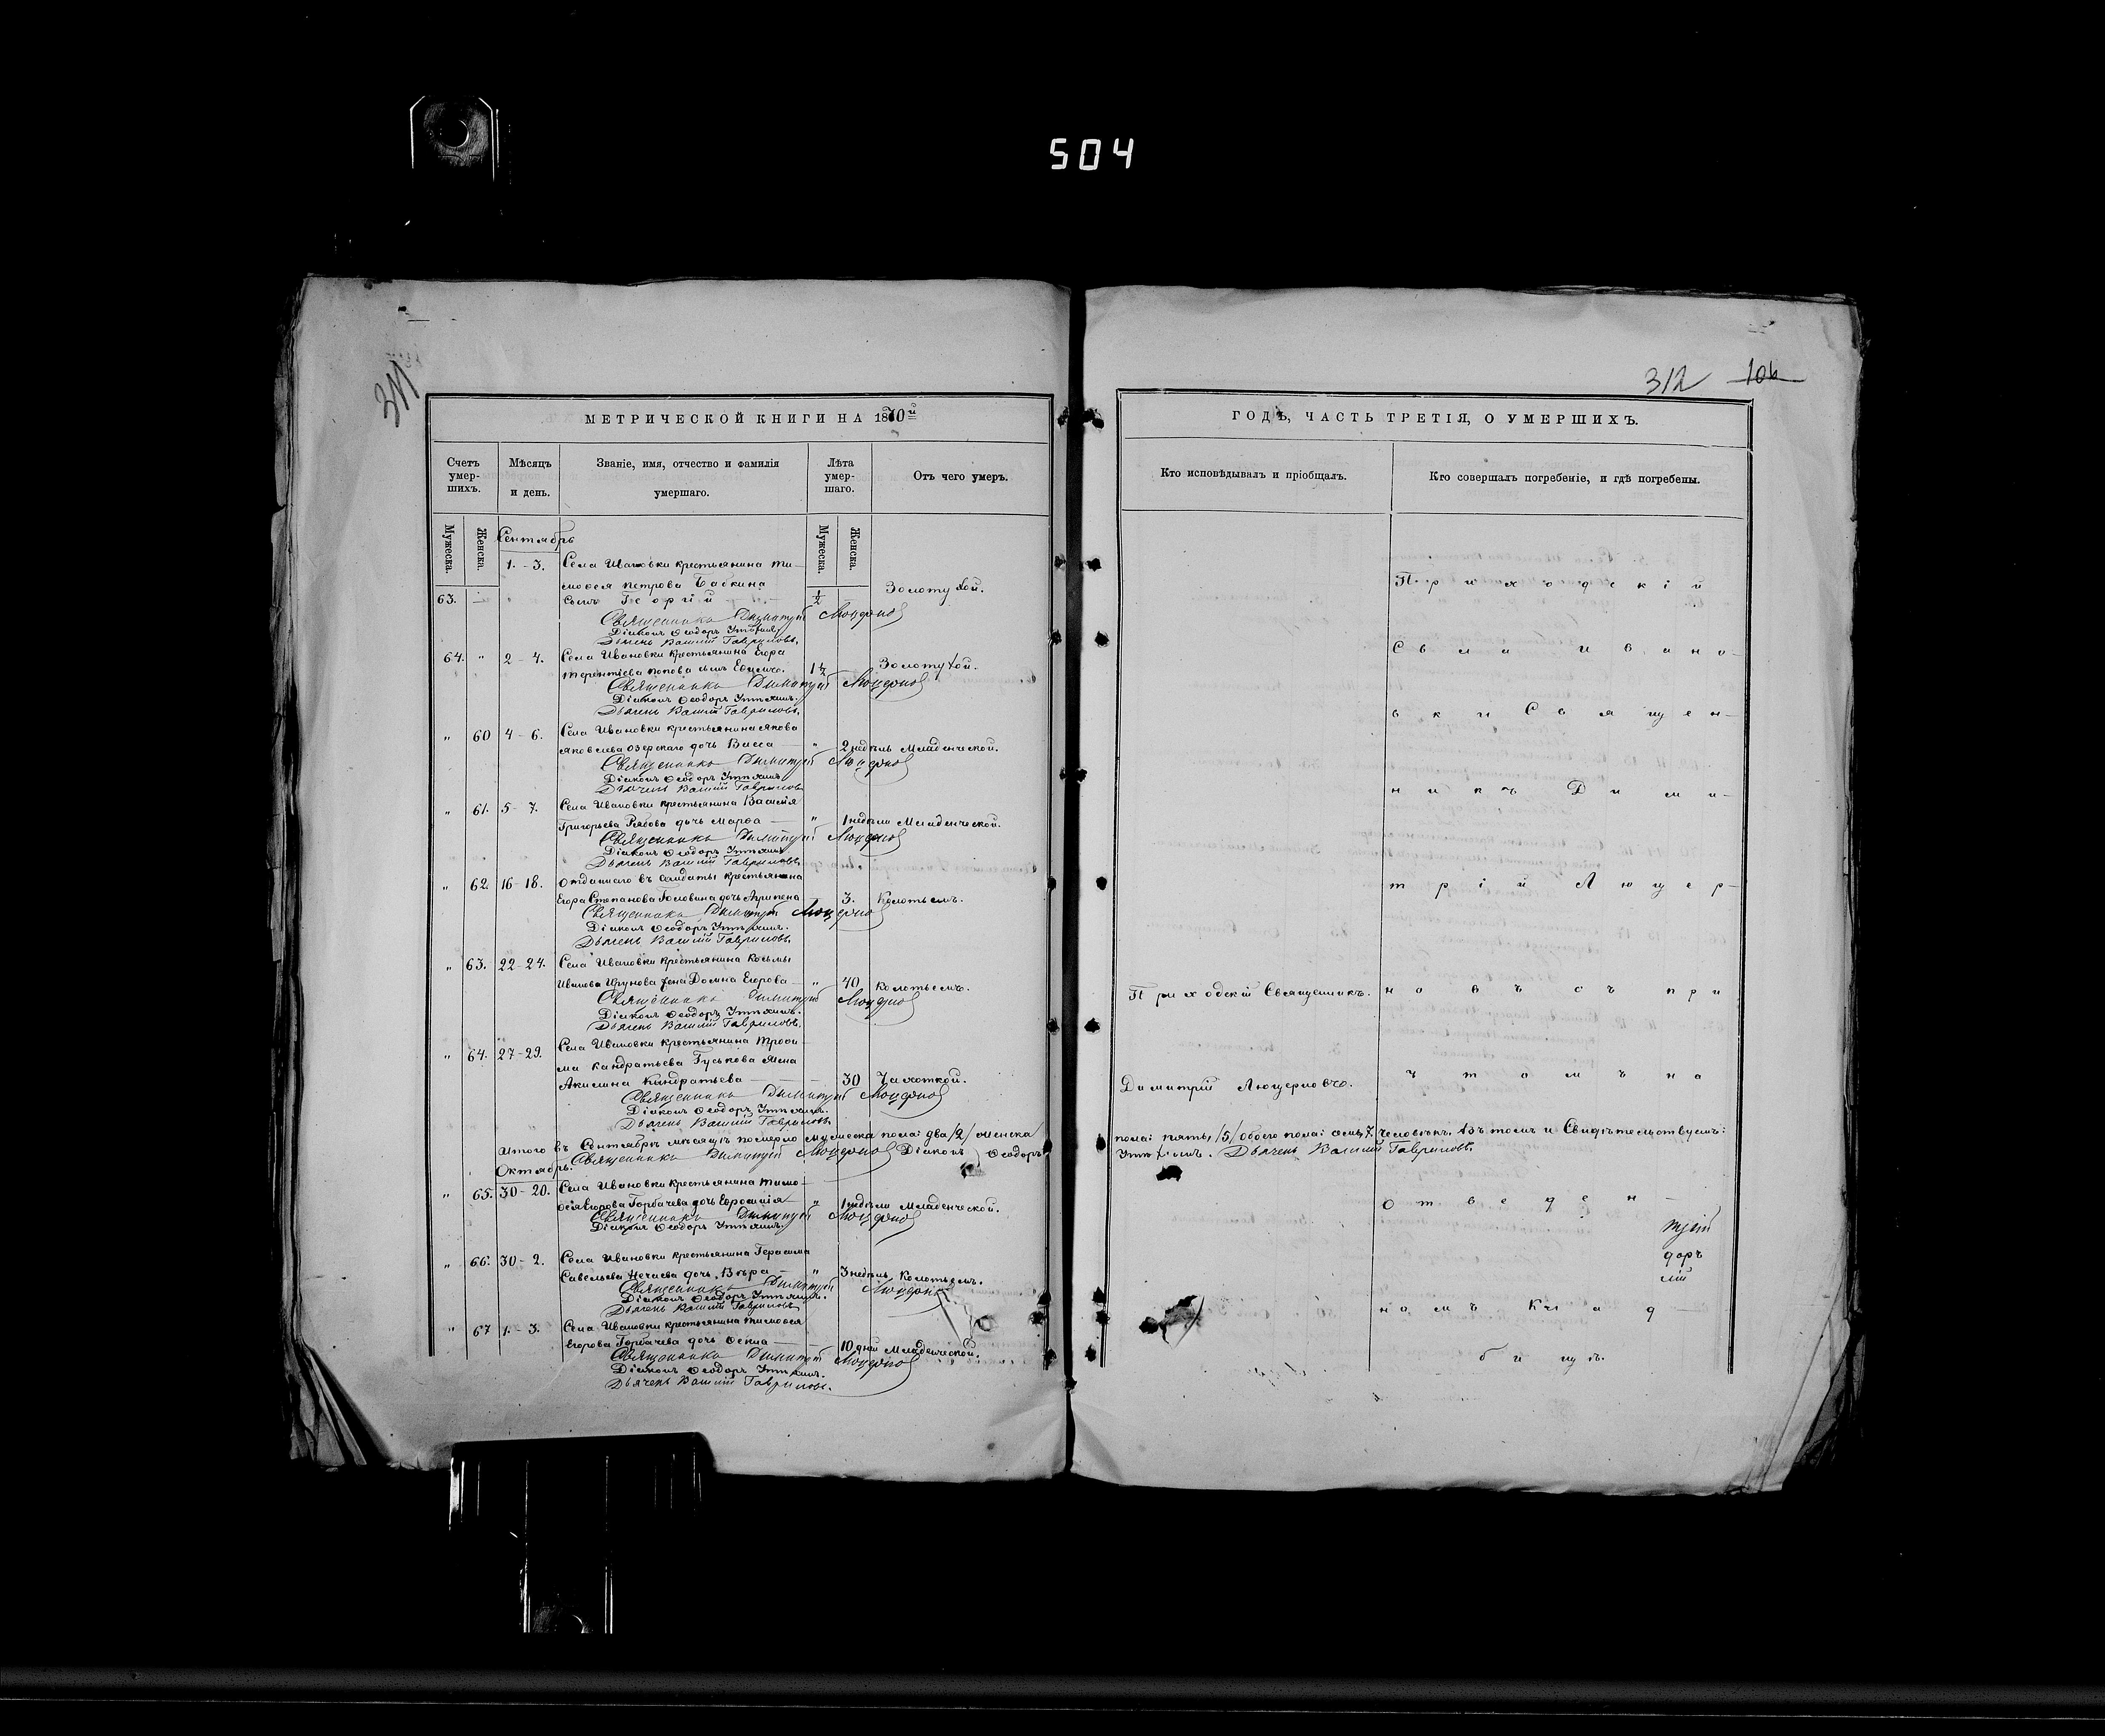 504
311
МЕТРИЧЕСКОЙ КНИГИ НА 1870й
Счетъ умер-шихъ.
Мѣсяцъ и день.
Званіе, имя, отчество и фамилія умершаго.
Лѣта умер-шаго.
Отъ чего умеръ.
Мужеска. Женска.
Мужеска. Женска.
Сентябрь
1.-3. Села Ивановки крестьянина Ти-
моѳея Петрова Бабкина
63. сынъ Георгій ½ Золотухой.
Священникъ Димитрій Люцерновъ
Діаконъ Ѳеодоръ
Дьячекъ Василій Гавриловъ.
64. " 2-4. Села Ивановки крестьянина Егора
Терентьева Попова сынъ Ефимъ. 1½ Золотухой.
Священникъ Димитрій Люцерновъ
Діаконъ Ѳеодоръ
Дьячекъ Василій Гавриловъ.
" 60 4-6. Села Ивановки крестьянина Якова
Яковлева Озерскаго дочь Васса " 2 недѣль Младенческой.
Священникъ Димитрій Люцерновъ
Діаконъ Ѳеодоръ
Дьячекъ Василій Гавриловъ
" 61. 5-7. Села Ивановки крестьянина Василія
Григорьева Рябова дочь Марѳа " 1 недѣли Младенческой.
Священникъ Димитрій Люцерновъ
Діаконъ Ѳеодоръ
Дьячекъ Василій Гавриловъ
" 62. 16-18. Отданнаго въ солдаты крестьянина
Егора Степанова Головина дочь 3. Колотьемъ.
Священникъ Димитрій Люцерновъ
Діаконъ Ѳеодоръ
Дьячекъ Василій Гавриловъ.
" 63. 22-24. Села Ивановки крестьянина Козьмы
Иванова жена Домна Егорова " 40 Колотьемъ.
Священникъ Димитрій Люцерновъ
Діаконъ Ѳеодоръ
Дьячекъ Василій Гавриловъ.
" 64. 27-29. Села Ивановки крестьянина Трофи-
ма Кандратьева Гуськова жена
Акилина Кандратьева 30 Чахоткой.
Священникъ Димитрій Люцерновъ
Діаконъ Ѳеодоръ
Дьячекъ Василій Гавриловъ
Итого въ Сентябрѣ мѣсяцѣ померло мужеска пола: два /2/ женска
Священникъ Димитрій Люцерновъ Діаконъ Ѳеодоръ
Октябрь.
" 65. 30-20. Села Ивановки крестьянина Тимо-
ѳея Егорова Горбачева дочь Ефросинія " 1 недѣли Младенческой.
Священникъ Димитрій Люцерновъ
Діаконъ Ѳеодоръ
" 66. 30-2. Села Ивановки крестьянина Герасима
Савельева Нечаева дочь Вѣра " 3 недѣль Колотьемъ.
Священникъ Димитрій Люцерновъ
Діаконъ Ѳеодоръ
Дьячекъ Василій Гавриловъ
" 67 1.-3. Села Ивановки крестьянина Тимоѳея
Егорова Горбачева дочь 10 дній Младенческой.
Священникъ Димитрій Люцерновъ
Діаконъ Ѳеодоръ
Дьячекъ Василій Гавриловъ.
312 106
ГОДЪ, ЧАСТЬ ТРЕТІЯ, О УМЕРШИХЪ.
Кто исповѣдывалъ и пріобщалъ.
Кто совершалъ погребеніе, и гдѣ погребены.
Приходскій
Села Ивано-
вки Священ-
никъ Дими-
трій Люцер-
Приходскій Священникъ. новъ съ при
Димитрій Люцерновъ. чтомъ на
пола: пять, /5/ обоего пола: семь, 7. человѣкъ. Въ томъ и Свидѣтельствуемъ:
Дьячекъ Василій Гавриловъ
отведен-
трій
доръ
лій
номъ клад-
бищѣ.